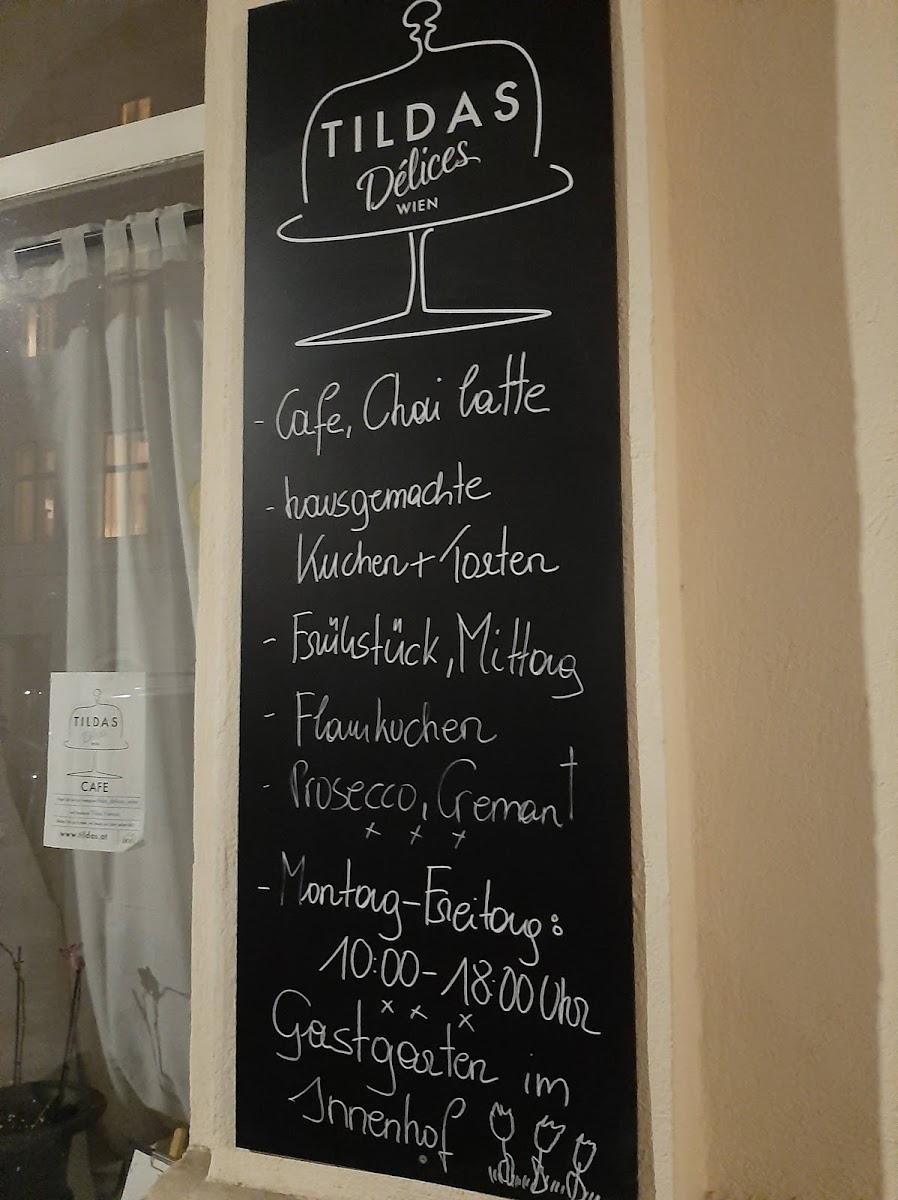 TILDAS
Délices
WIEN
- Cafe, Chai latte
- hausgemachte
Kuchen + Torten
- Frühstück, Mittag
- Flamkuchen
- Prosecco, Cremant
x x x
- Montag-Freitag:
10:00-18:00 Uhr
x x x
Gastgarten im
Innenhof
TILDAS
Délices
WIEN
CAFE
www.tildas.at